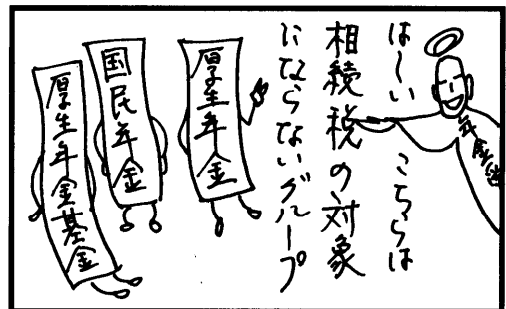 は~い
こちらは
相続税の対象
にならないグループ
厚生年金
国民年金
厚生年金基金